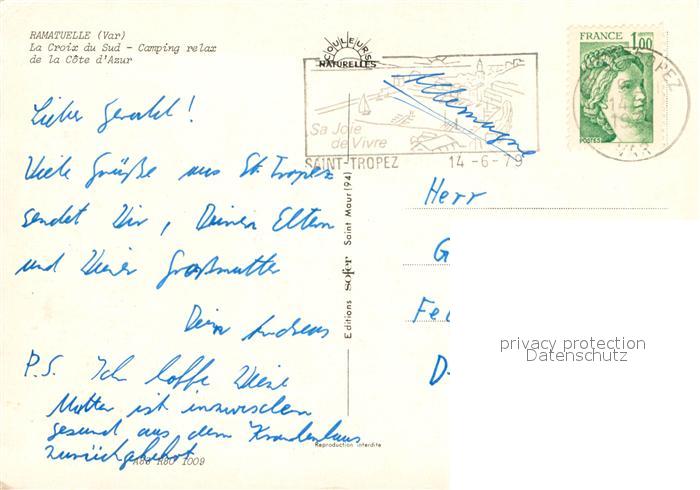 RAMATUELLE (Var)
La Croix du Sud - Camping relax
de la Côte d'Azur
COULEURS
NATURELLES
FRANCE 1,00
POSTES
Allemagne
Sa Joie
de Vivre
SAINT-TROPEZ 14-6-79
TROPEZ
14
VAR
Lieber Gerald!
Viele Grüße aus St. Tropez
sendet Dir, Deinen Eltern
und Deiner Großmutter
Dein Andreas
P.S. Ich hoffe Deine
Mutter ist inzwischen
gesund aus dem Krankenhaus
zurückgekehrt
1009
Editions sofer Saint Maur (94)
Reproduction interdite
Herr
G
Fel
D-
privacy protection
Datenschutz